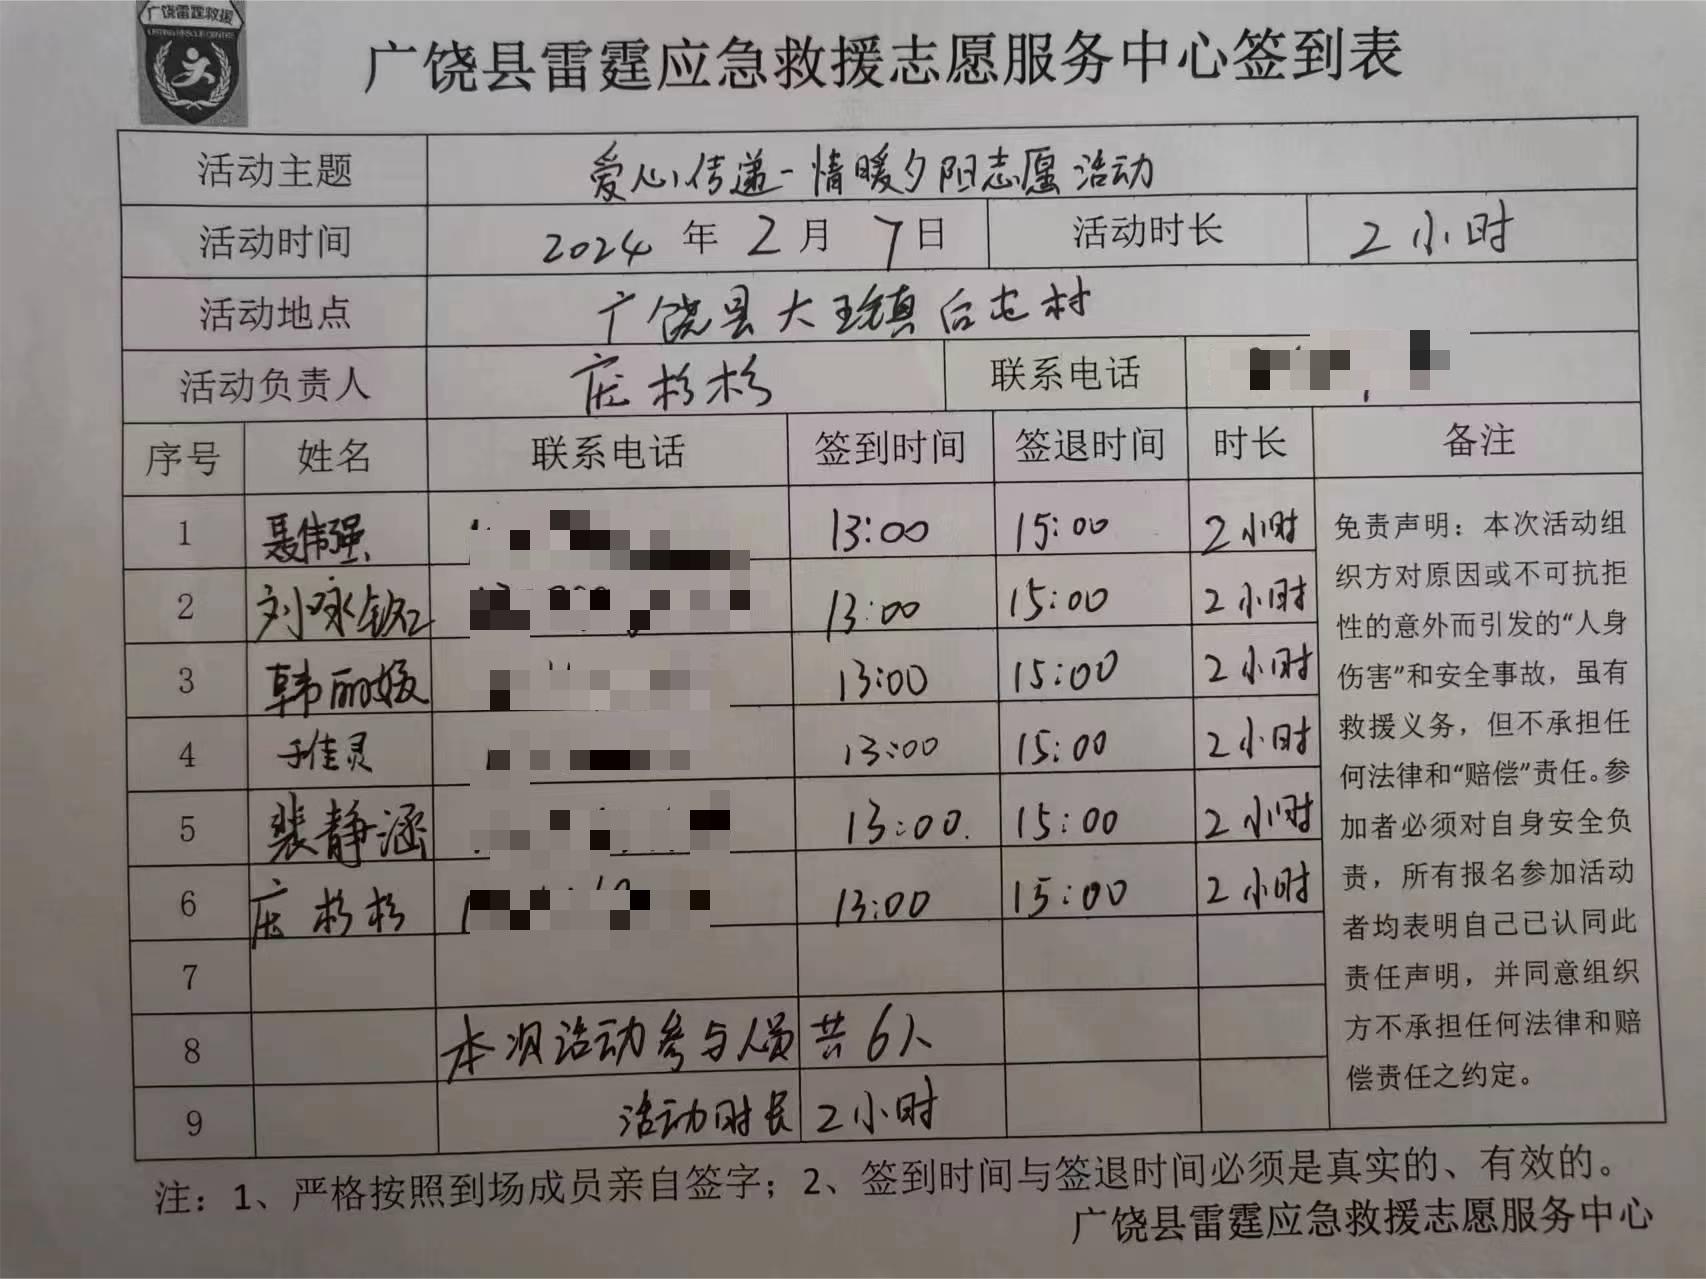 广饶雷霆救援
广饶县雷霆应急救援志愿服务中心签到表
活动主题 爱心传递-情暖夕阳志愿活动
活动时间 2024年2月7日 活动时长 2小时
活动地点 广饶县大王镇后屯村
活动负责人 庄杉杉 联系电话
序号 姓名 联系电话 签到时间 签退时间 时长 备注
1 聂伟强 13:00 15:00 2小时
2 刘咏 13:00 15:00 2小时
3 韩丽媛 13:00 15:00 2小时
4 于佳灵 13:00 15:00 2小时
5 裴静涵 13:00. 15:00 2小时
6 庄杉杉 13:00 15:00 2小时
7
8 本次活动参与人员共6人
9 活动时长2小时
免责声明：本次活动组
织方对原因或不可抗拒
性的意外而引发的“人身
伤害”和安全事故，虽有
救援义务，但不承担任
何法律和“赔偿”责任。参
加者必须对自身安全负
责，所有报名参加活动
者均表明自己已认同此
责任声明，并同意组织
方不承担任何法律和赔
偿责任之约定。
注：1、严格按照到场成员亲自签字；2、签到时间与签退时间必须是真实的、有效的。
广饶县雷霆应急救援志愿服务中心